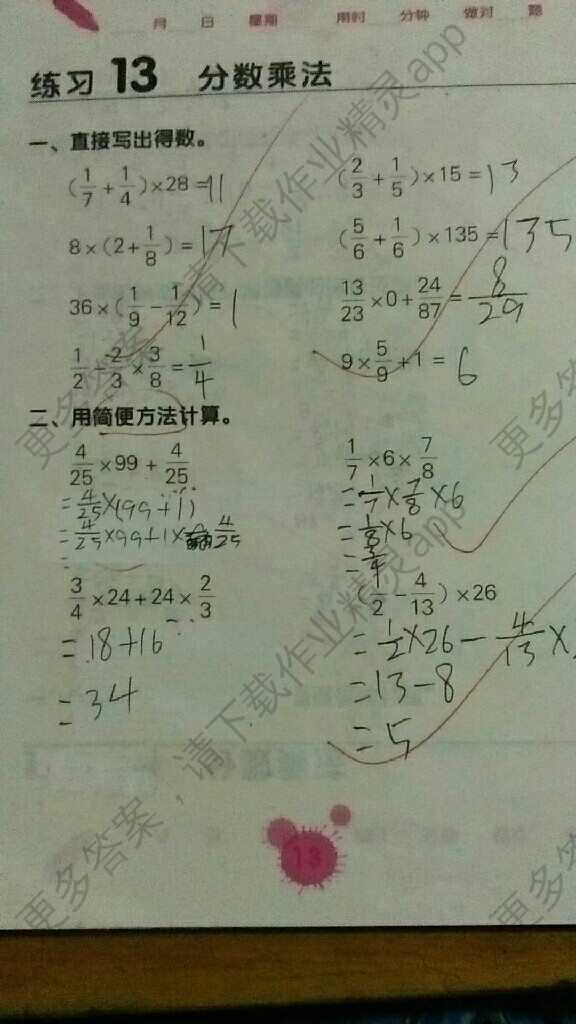 月 日 星期 用时 分钟 做对 题
练习 13 分数乘法
一、直接写出得数。
(1/7+1/4)×28=11 (2/3+1/5)×15=13
8×(2+1/8)=17 (5/6+1/6)×135=135
36×(1/9-1/12)=1 13/23×0+24/87=8/29
1/2-2/3×3/8=1/4 9×5/9+1=6
二、用简便方法计算。
4/25×99+4/25 1/7×6×7/8
=4/25×(99+1) =1/7×7/8×6
=4/25×99+1×4/25 =1/8×6
= =3/4
3/4×24+24×2/3 (1/2-4/13)×26
=18+16 =1/2×26-4/13×
=34 =13-8
=5
13
更多答案，请下载作业精灵app